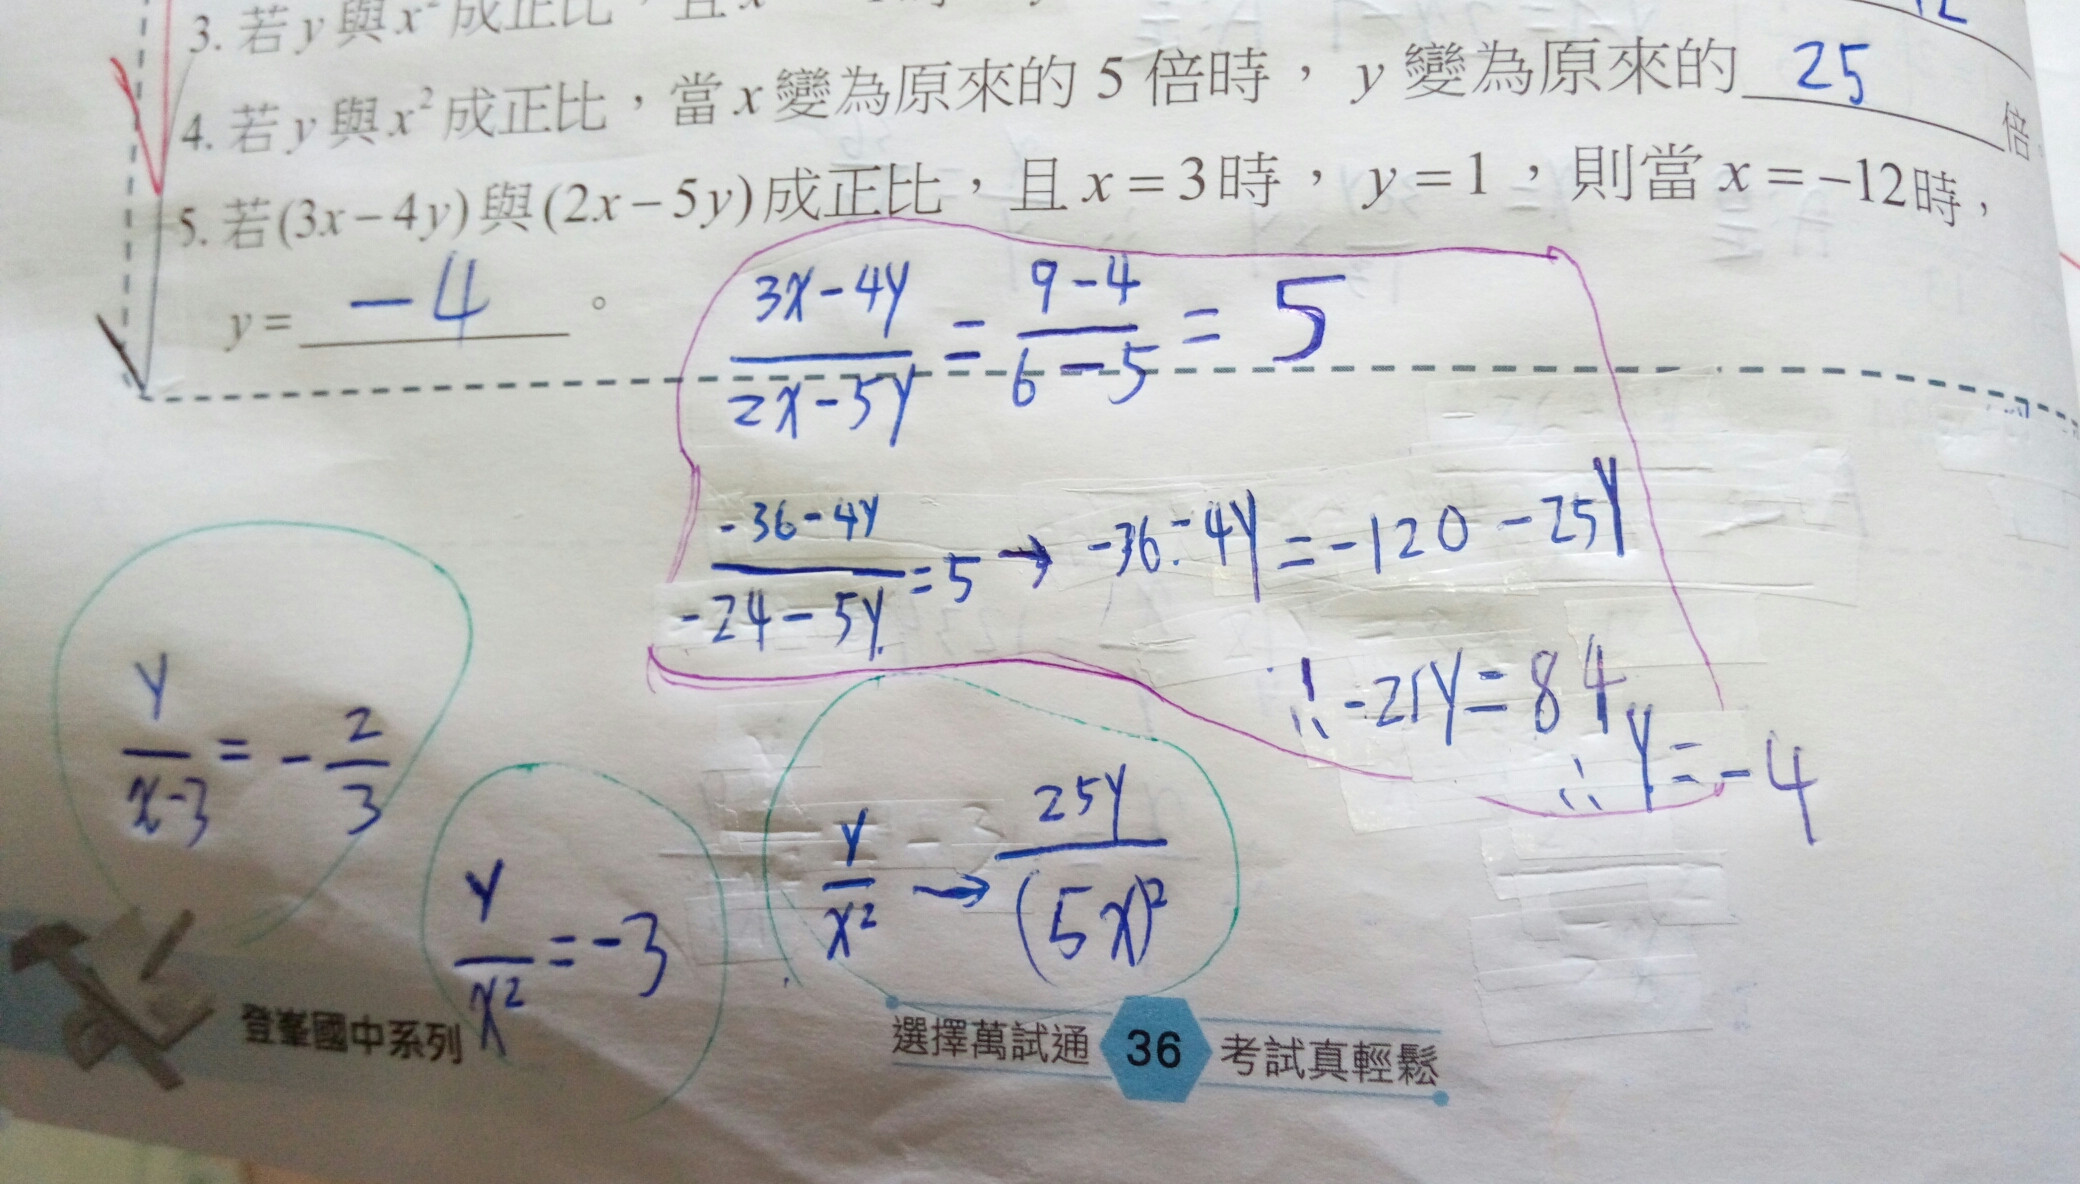 3. 若y與x²成正比，且x
12
4. 若y與x²成正比，當x變為原來的5倍時，y變為原來的 25 倍。
5. 若(3x-4y)與(2x-5y)成正比，且x=3時，y=1，則當x=-12時，
y= -4 。
(3x-4y)/(2x-5y) = (9-4)/(6-5) = 5
(-36-4y)/(-24-5y) = 5 → -36-4y = -120-25y
∴ -21y = 84
∴ y = -4
y/(x-3) = -2/3
y/x² = -3
y/x² → 25y/(5x)²
登峯國中系列
選擇萬試通 36 考試真輕鬆